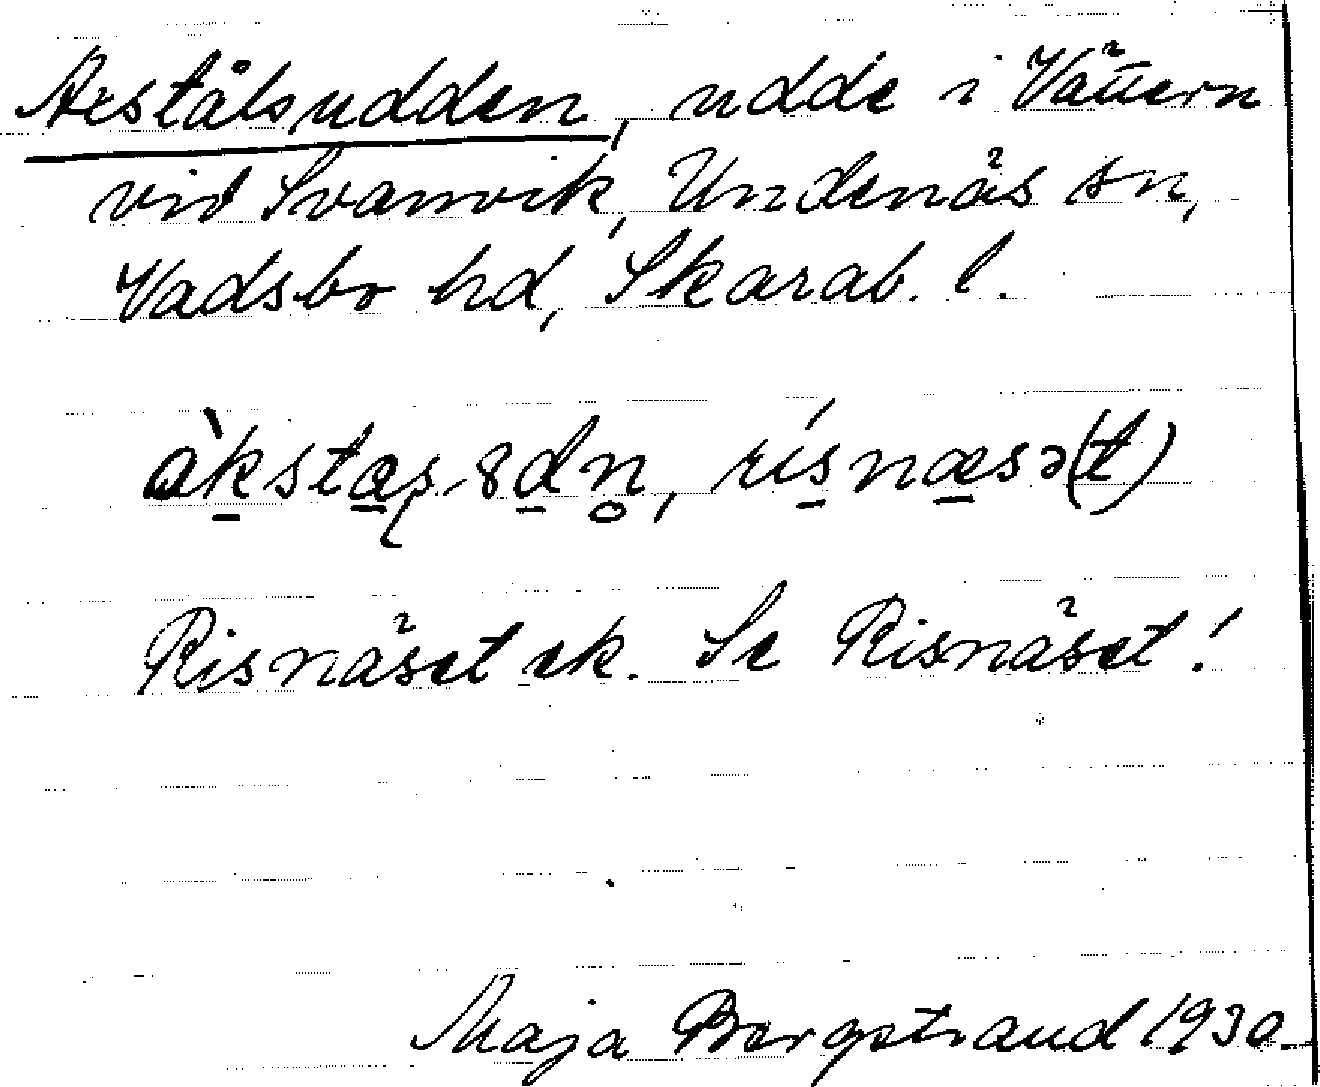 Axstålsudden, udde i Vättern
vid Svanvik, Undenäs sn,
Vadsbo hd, Skarab. l.
rísnæsə(t)
Risnäset ek. Se Risnäset!
Maja Bergstrand 1930.